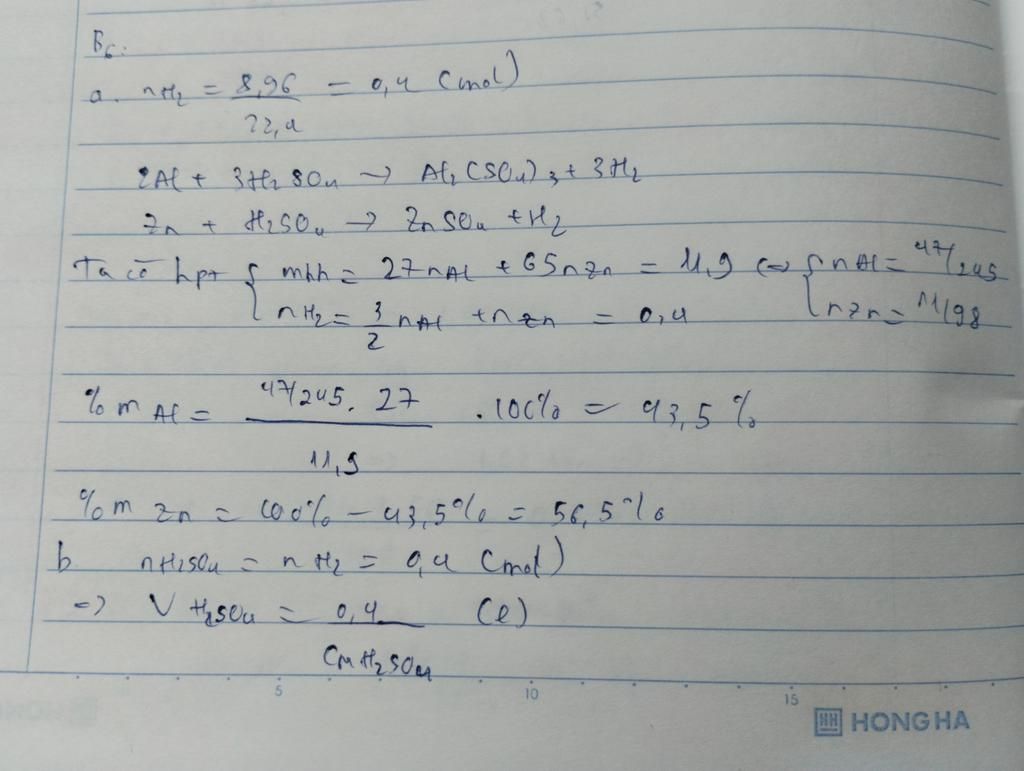 B6:
a. nH2 = 8,96 / 22,4 = 0,4 (mol)
2Al + 3H2SO4 → Al2(SO4)3 + 3H2
Zn + H2SO4 → ZnSO4 + H2
Ta có hpt { mhh = 27nAl + 65nZn = 11,9 ⇔ { nAl = 47/245
nH2 = 3/2 nAl + nZn = 0,4 nZn = 11/98
% m Al = 47/245 . 27 / 11,9 . 100% = 43,5 %
% m Zn = 100% - 43,5% = 56,5%
b nH2SO4 = nH2 = 0,4 (mol)
=> V H2SO4 = 0,4 / CM H2SO4 (l)
5 10 15
HH HONG HA